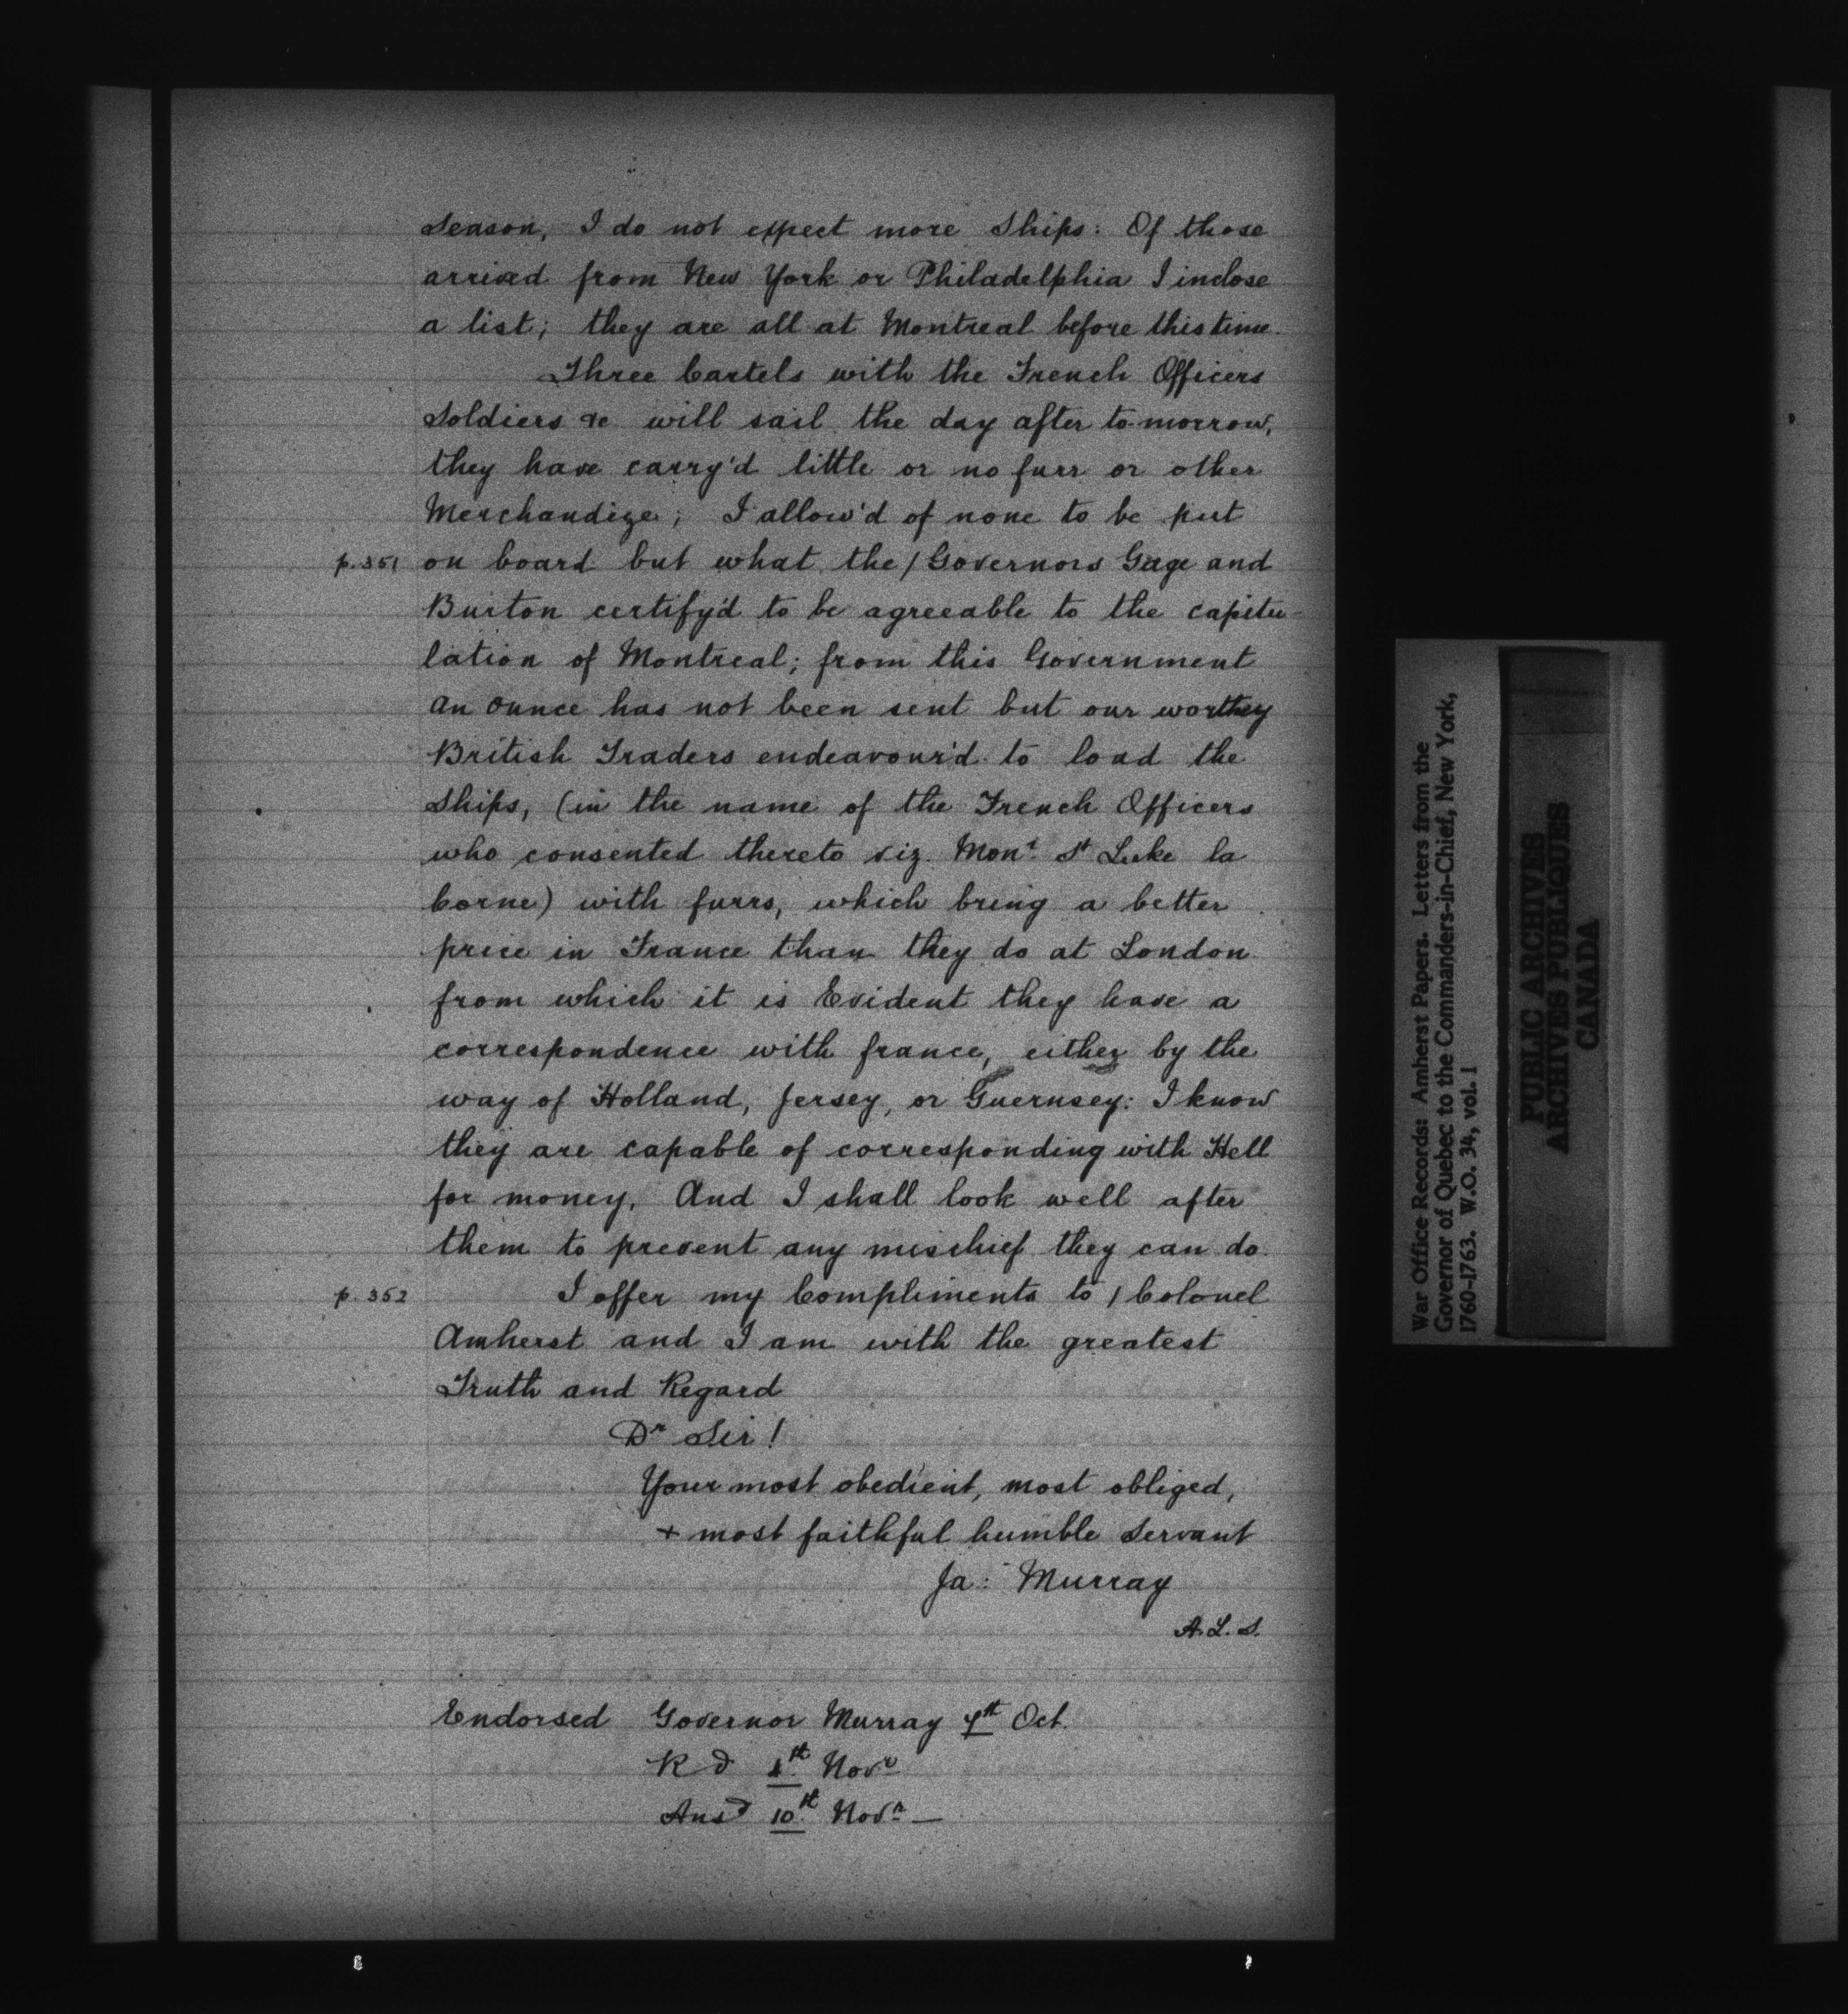 Season, I do not expect more Ships: Of those
arrived from New York or Philadelphia I inclose
a list; they are all at Montreal before this time.
Three Cartels with the French Officers
Soldiers &c will sail the day after to-morrow,
they have carry'd little or no furr or other
Merchandize; I allow'd of none to be put
p. 351 on board but what the / Governors Gage and
Burton certify'd to be agreeable to the capitu-
lation of Montreal; from this Government
an ounce has not been sent but our worthey
British Traders endeavour'd to load the
Ships, (in the name of the French Officers
who consented thereto viz. Monr. St Luke la
Corne) with furrs, which bring a better
price in France than they do at London
from which it is Evident they have a
correspondence with france, either by the
way of Holland, Jersey, or Guernsey: I know
they are capable of corresponding with Hell
for money. And I shall look well after
them to prevent any mischief they can do.
p. 352 I offer my Compliments to / Colonel
Amherst and I am with the greatest
Truth and Regard
Dr Sir!
Your most obedient, most obliged,
+ most faithful humble Servant
Ja: Murray
A.L.S.
Endorsed Governor Murray Oct.
Rd Novr
Ansd 10th Novr —
War Office Records: Amherst Papers. Letters from the
Governor of Quebec to the Commanders-in-Chief, New York,
1760-1763. W.O. 34, vol. 1
PUBLIC ARCHIVES
ARCHIVES PUBLIQUES
CANADA